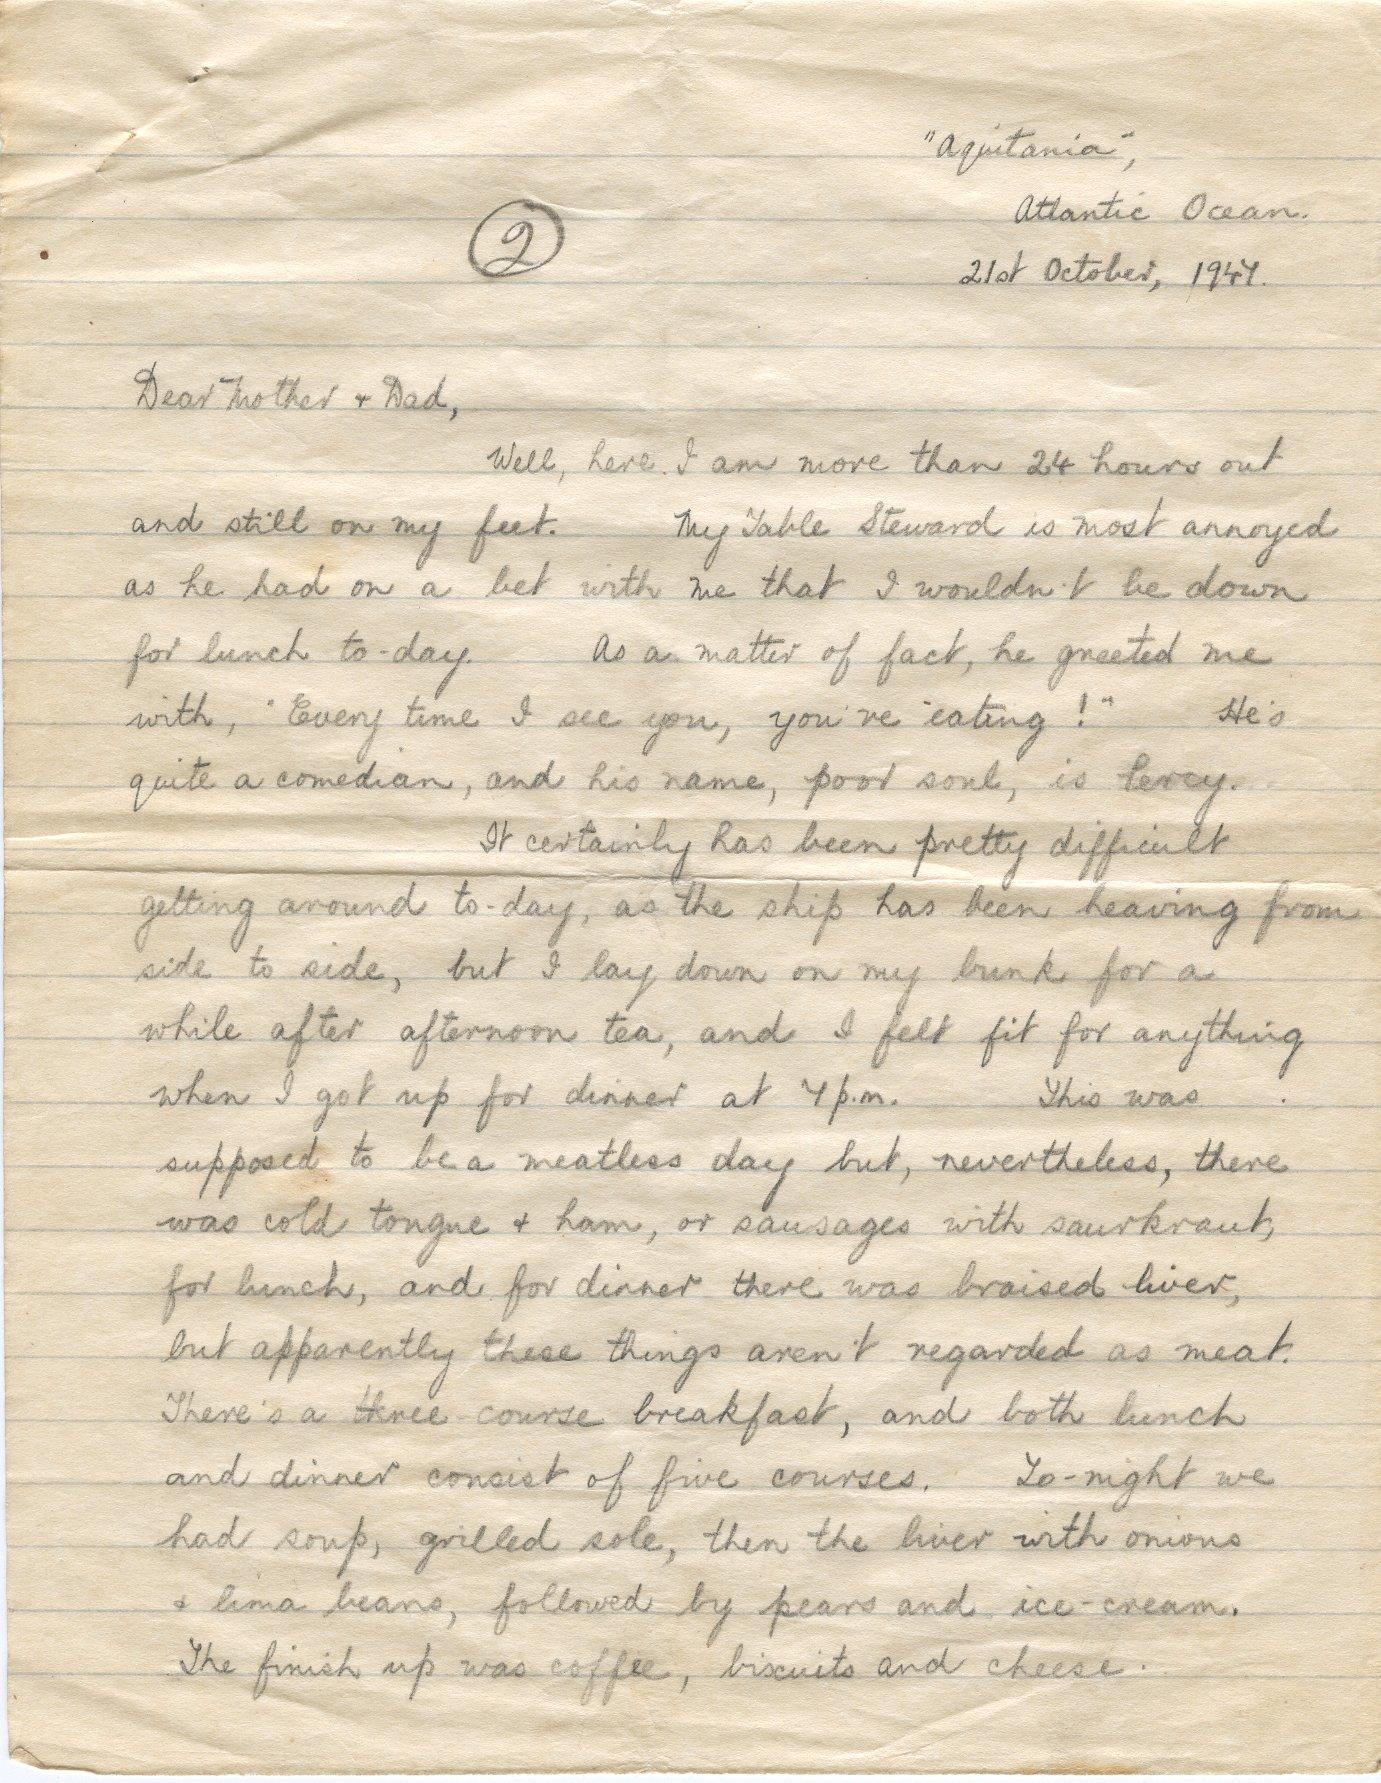 "Aquitania",
Atlantic Ocean.
2
21st October, 1947.
Dear Mother & Dad,
Well, here I am more than 24 hours out
and still on my feet. My Table Steward is most annoyed
as he had on a bet with me that I wouldn't be down
for lunch to-day. As a matter of fact, he greeted me
with, "Every time I see you, you're eating!" He's
quite a comedian, and his name, poor soul, is Percy.
It certainly has been pretty difficult
getting around to-day, as the ship has been heaving from
side to side, but I lay down on my bunk for a
while after afternoon tea, and I felt fit for anything
when I got up for dinner at 7 p.m. This was
supposed to be a meatless day but, nevertheless, there
was cold tongue & ham, or sausages with saurkraut,
for lunch, and for dinner there was braised liver,
but apparently these things aren't regarded as meat.
There's a three-course breakfast, and both lunch
and dinner consist of five courses. To-night we
had soup, grilled sole, then the liver with onions
& lima beans, followed by pears and ice-cream.
The finish up was coffee, biscuits and cheese.